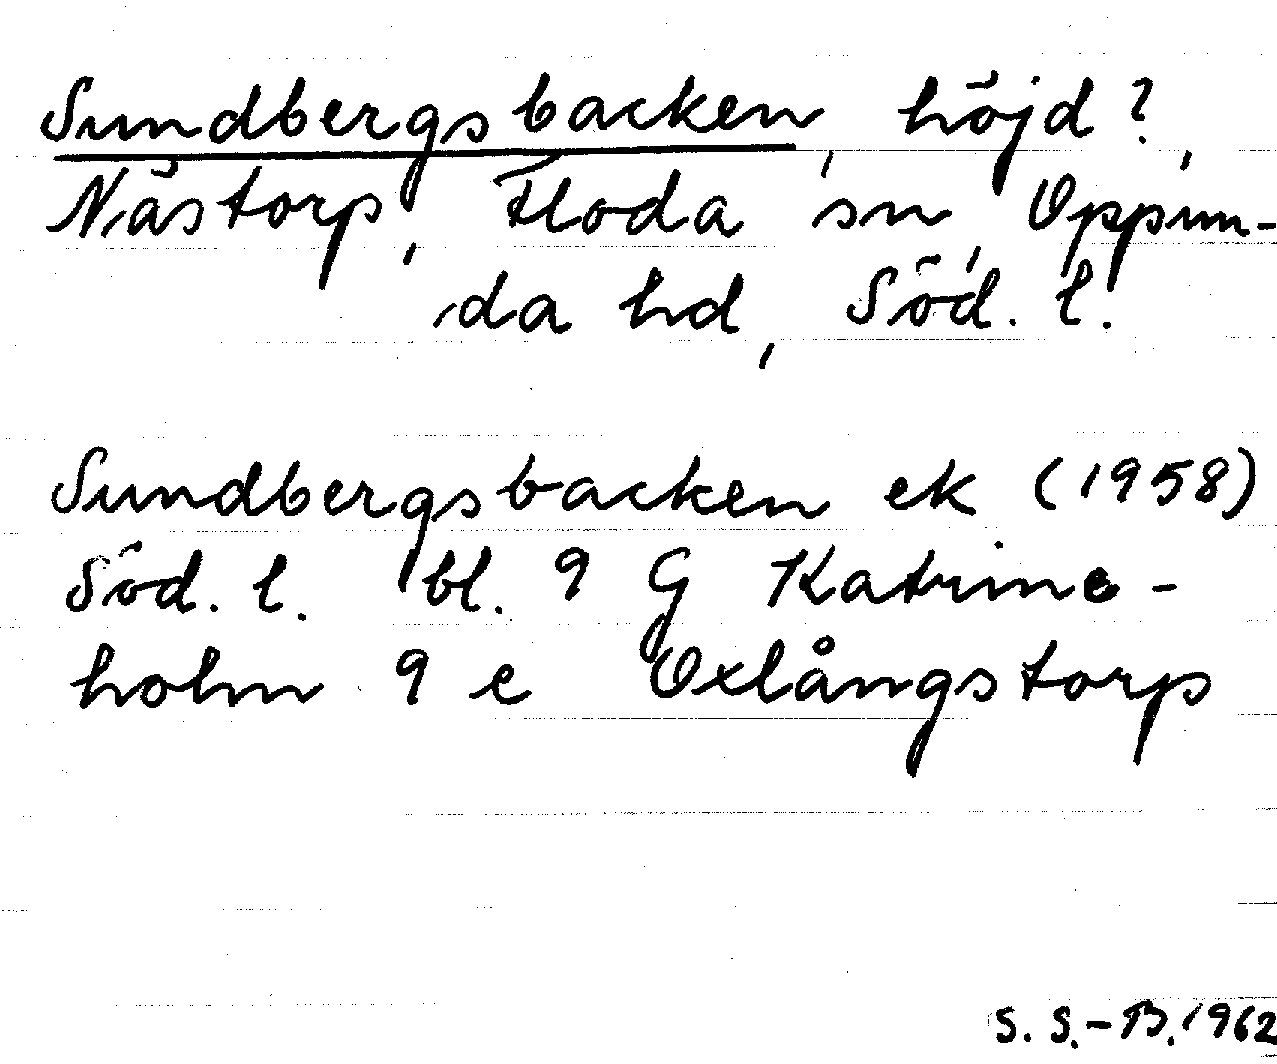 Sundbergsbacken, höjd?,
Nästorp, Floda sn, Oppun-
da hd, Söd. l.
Sundbergsbacken ek (1958)
Söd. l. bl. 9 G Katrine-
holm 9 e Oxlångstorp
S. S.-B. 1962